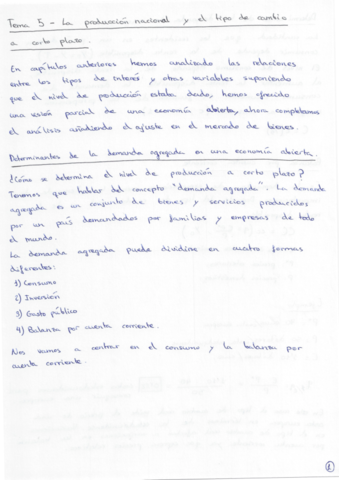 Tema 5 - La producción nacional y el tipo de cambio
a corto plazo.
En capítulos anteriores hemos analizado las relaciones
entre los tipos de interés y otras variables suponiendo
que el nivel de producción estaba dado, hemos ofrecido
una visión parcial de una economía abierta, ahora completamos
el análisis añadiendo el ajuste en el mercado de bienes.
Determinantes de la demanda agregada en una economía abierta.
¿Cómo se determina el nivel de producción a corto plazo?
Tenemos que hablar del concepto "demanda agregada". La demanda
agregada es un conjunto de bienes y servicios producidos
por un país demandados por familias y empresas de todo
el mundo.
La demanda agregada puede dividirse en cuatro formas
diferentes:
1) Consumo
2) Inversión
3) Gasto público
4) Balanza por cuenta corriente.
Nos vamos a centrar en el consumo y la balanza por
cuenta corriente.
1